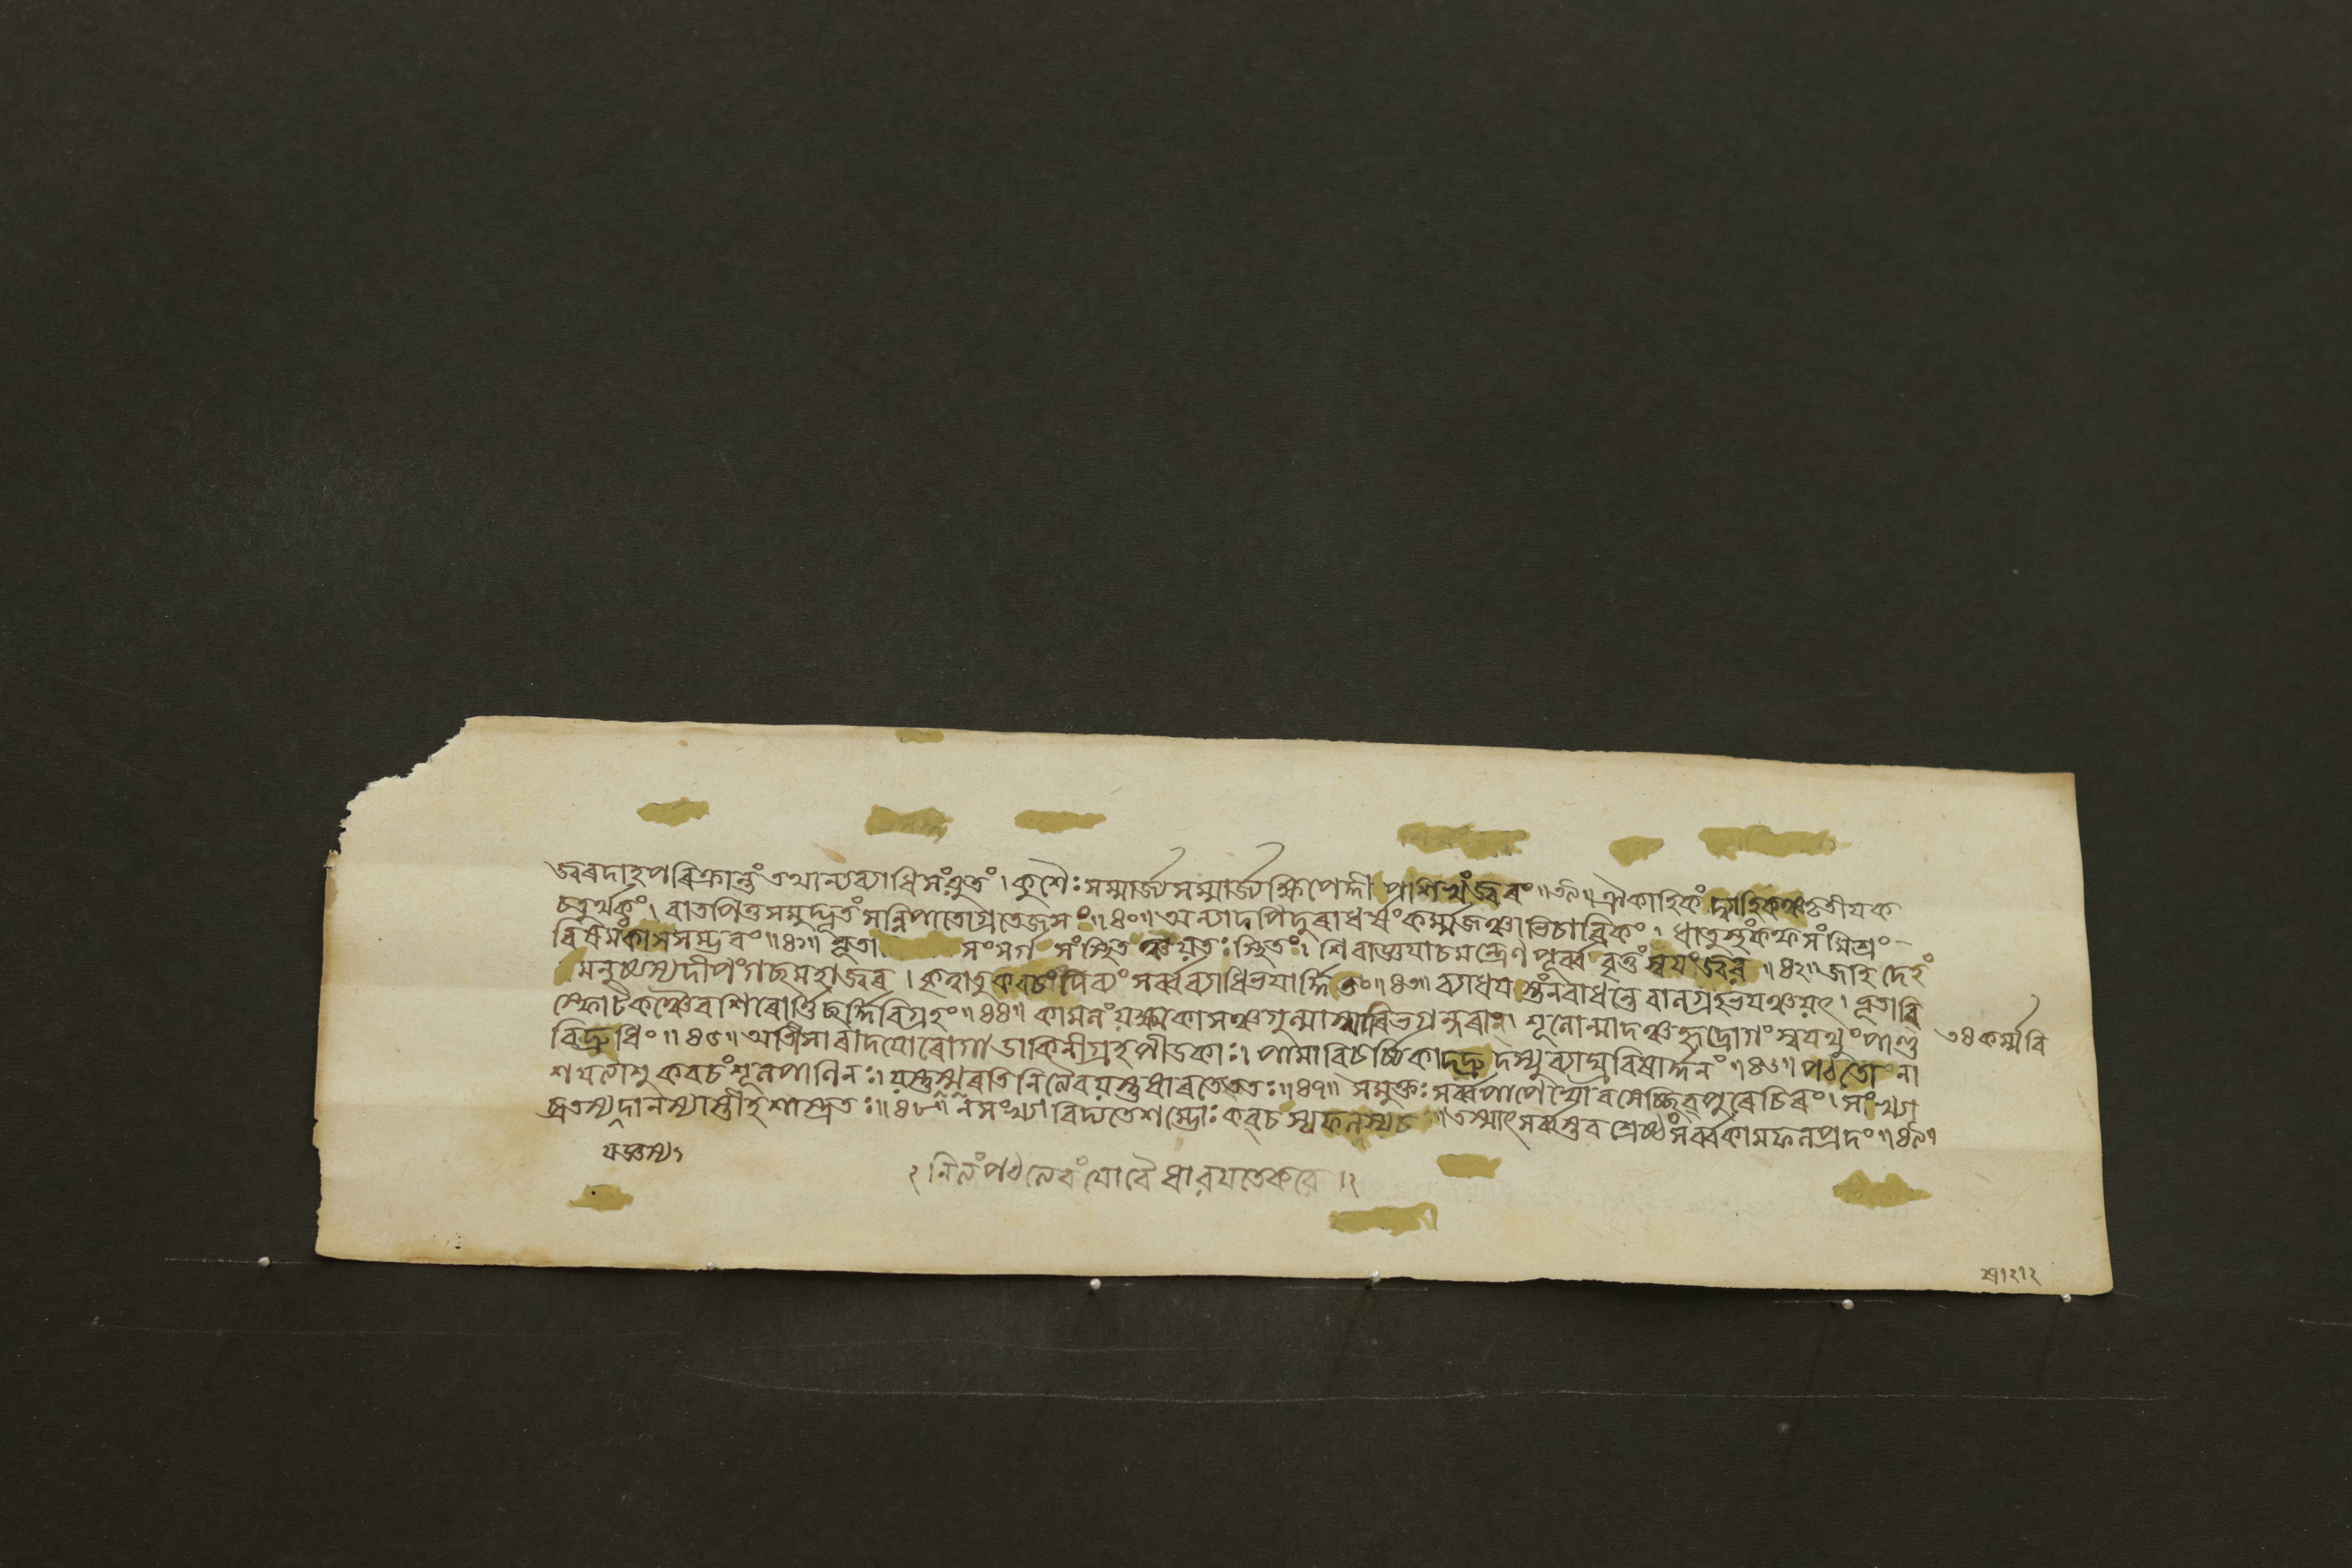 জ্বৰদাহপৰিক্রান্তং তথান্যব্যাধিসংযুতং । কুশৈঃ সম্মাৰ্জ্য সম্মাৰ্জ্য ক্ষিপেদ্দীপশিখং জ্বৰং ॥ ৩৯ ॥ ঐকাহিকং দ্ব্যাহিকঞ্চ তৃতীয়ক
চতুৰ্থকং । বাতপিত্তসমুদ্ভূতং সন্নিপাতোগ্রতেজসং ॥ ৪০ ॥ অন্যাদপি দুৰাধৰ্ষং কৰ্ম্মজঞ্চাভিচাৰিকং । ধাতুস্থং কফসংমিশ্রং
বিষমং কামসম্ভবং ॥ ৪১ ॥ ভূতা সংসৰ্গ সংস্থিত ঞ্চ য়তঃ স্থিতং । শিবাজ্ঞয়াচ মন্ত্রেণ পূৰ্ব্ববৃত্তং স্বয়ং জ্বৰ ॥ ৪২ ॥ জহি দেহং
মনুষ্যস্য দীপং গচ্ছ মহাজ্বৰ । কৃত্বাতু কবচং দিব্যং সৰ্ব্বব্যাধিভয়াৰ্দ্দিতং ॥ ৪৩ ॥ ব্যাধয়স্তং ন বাধন্তে বালগ্রহভয়ঞ্চ য়ৎ । লূতাবি
স্ফোটকঞ্চৈব শিৰোৰ্ত্তিচ্ছৰ্দ্দিবিগ্রহং ॥ ৪৪ ॥ কামলং য়ক্ষ্মকাসঞ্চ গুল্মাশ্মৰিভগন্দৰান্ । শূলোন্মাদঞ্চ হৃদ্ৰোগং শ্বয়থুং পাণ্ডু
বিদ্রধিং ॥ ৪৫ ॥ অতিসাৰাদয়ো ৰোগা ডাকিনীগ্রহপীডকাঃ । পামাবিচৰ্চ্চিকাদদ্রু দস্যুব্যাঘ্রবিষাৰ্দ্দনং ॥ ৪৬ ॥ পঠতো না
শয়ত্যাশু কবচং শূলপাণিনঃ । য়স্তু স্মৰতি নিত্যৈব য়স্তু ধাৰতে ততঃ ॥ ৪৭ ॥ স মুক্তঃ সৰ্ব্বপাপেভ্যো বসেচ্ছিবপুৰে চিৰং । সংখ্যা
ব্রতস্য দানস্যাস্তীহ শাস্ত্রতঃ ॥ ৪৮ ॥ ন সংখ্যা বিদ্যতে শম্ভোঃ কবচস্য ফলস্যচ ॥ তস্মাৎ সৰ্ব্বস্তবশ্রেষ্ঠং সৰ্ব্বকামফলপ্রদং ॥ ৪৯ ॥
৩৪ কৰ্ম্মবি
যজ্ঞস্য ১
২ নিত্যং পঠত্যেবং যো বৈ ধাৰয়তে কবে । ২